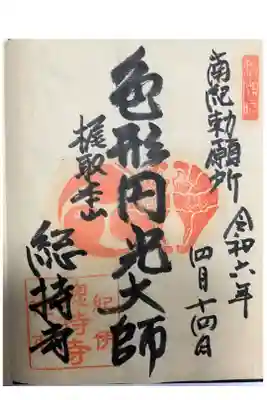 勅願所
令和六年
四月十四日
色形円光大師
梶取本山
総持寺
紀伊